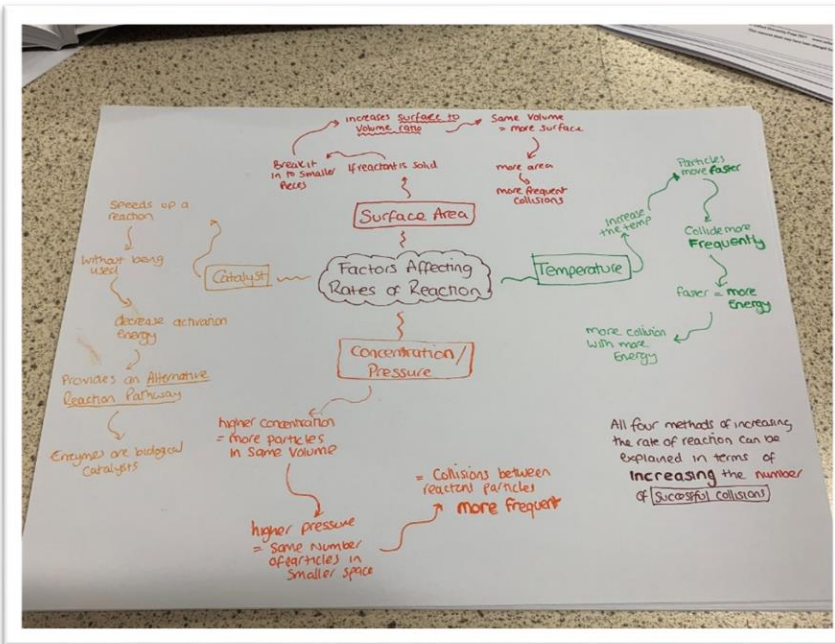 Factors Affecting
Rates of Reaction
Surface Area
If reactant is solid
Break it
in to smaller
Peces
increases surface to
volume ratio
Same Volume
= more surface
more area
more frequent
collisions
Temperature
Increase
the temp
Particles
move faster
Collide more
Frequently
faster = more
Energy
more collision
with more
Energy
Concentration/
Pressure
higher concentration
= more particles
in same volume
higher pressure
= same number
of particles in
smaller space
= Collisions between
reactant particles
more frequent
Catalyst
Speeds up a
reaction
Without being
used
decrease activation
Energy
Provides an Alternative
Reaction Pathway
Enzymes are biological
catalysts
All four methods of increasing
the rate of reaction can be
explained in terms of
increasing the number
of successful collisions